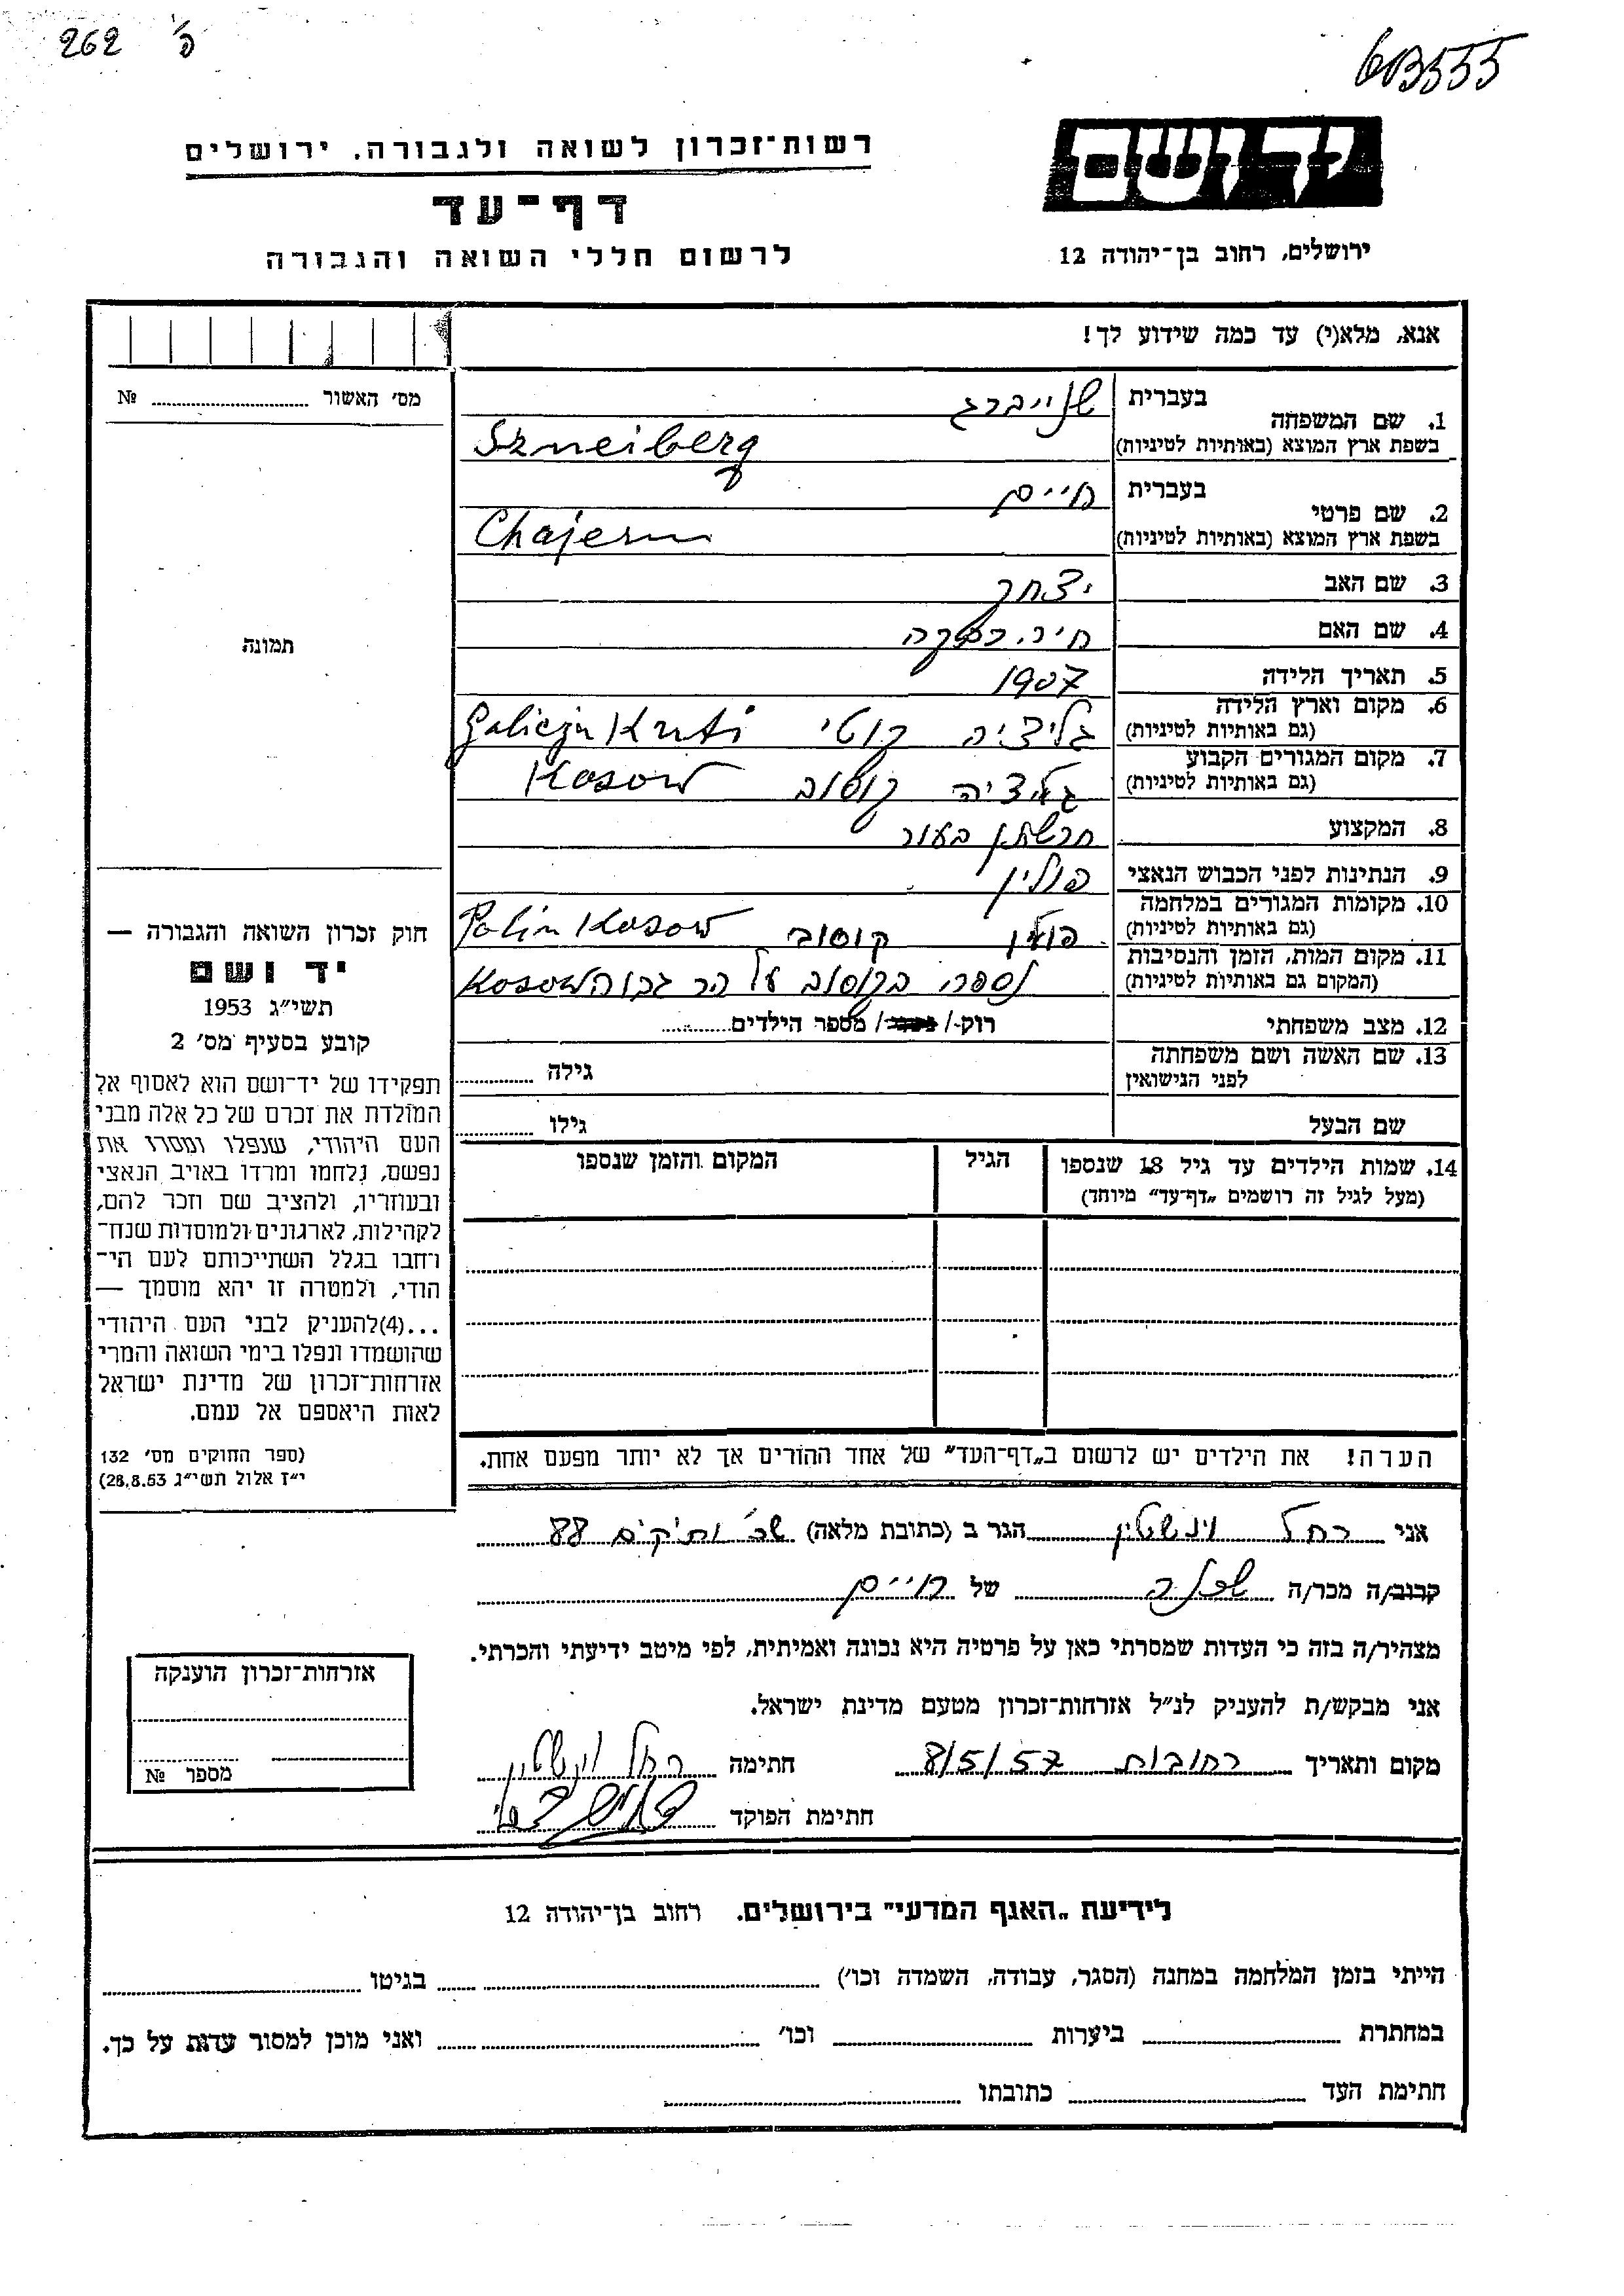 262 פ'
603555
יד ושם
רשות־זכרון לשואה ולגבורה, ירושלים
דף־עד
לרשום חללי השואה והגבורה
ירושלים, רחוב בן־יהודה 12
אנא, מלא(י) עד כמה שידוע לך!
מס' האשור № 
1. שם המשפחה בעברית שנייברג
בשפת ארץ המוצא (באותיות לטיניות) Szneiberg
2. שם פרטי בעברית חיים
בשפת ארץ המוצא (באותיות לטיניות) Chajem
3. שם האב יצחק
4. שם האם חיה
5. תאריך הלידה 1907
6. מקום וארץ הלידה (גם באותיות לטיניות) גליציה קוטי Galicja Kuti
7. מקום המגורים הקבוע (גם באותיות לטיניות) גליציה קוסוב Kosow
8. המקצוע בעור
9. הנתינות לפני הכבוש הנאצי פולין
10. מקומות המגורים במלחמה (גם באותיות לטיניות) פולין קוסוב Polin Kosow
11. מקום המות, הזמן והנסיבות (המקום גם באותיות לטיניות) נספה בקוסוב על הר גבוה Kosow
12. מצב משפחתי רווק/ נשוי/ מספר הילדים
13. שם האשה ושם משפחתה לפני הנישואין גילה
שם הבעל גילו
14. שמות הילדים עד גיל 18 שנספו הגיל המקום והזמן שנספו
(מעל לגיל זה רושמים „דף־עד" מיוחד)
הערה! את הילדים יש לרשום ב„דף־העד" של אחד ההורים אך לא יותר מפעם אחת.
תמונה
חוק זכרון השואה והגבורה —
יד ושם
תשי"ג 1953
קובע בסעיף מס' 2
תפקידו של יד־ושם הוא לאסוף אל
המולדת את זכרם של כל אלה מבני
העם היהודי, שנפלו ומסרו את
נפשם, נלחמו ומרדו באויב הנאצי
ובעוזריו, ולהציב שם וזכר להם,
לקהילות, לארגונים ולמוסדות שנח־
רחבו בגלל השתייכותם לעם הי־
הודי, ולמטרה זו יהא מוסמך —
...(4)להעניק לבני העם היהודי
שהושמדו ונפלו בימי השואה והמרי
אזרחות־זכרון של מדינת ישראל
לאות היאספם אל עמם.
(ספר החוקים מס' 132
י"ז אלול תשי"ג 28.8.53)
אני רחל וינשטין הגר ב (כתובת מלאה) שכ' ותיקים 88
קרוב/ה מכר/ה שכנה של חיים
מצהיר/ה בזה כי העדות שמסרתי כאן על פרטיה היא נכונה ואמיתית, לפי מיטב ידיעתי והכרתי.
אני מבקש/ת להעניק לנ"ל אזרחות־זכרון מטעם מדינת ישראל.
מקום ותאריך רחובות 8/5/57 חתימה רחל וינשטין
חתימת הפוקד
אזרחות־זכרון הוענקה
מספר №
לידיעת „האגף המדעי" בירושלים. רחוב בן־יהודה 12
הייתי בזמן המלחמה במחנה (הסגר, עבודה, השמדה וכו') בגיטו
במחתרת ביערות וכו' ואני מוכן למסור עדות על כך.
חתימת העד כתובתו